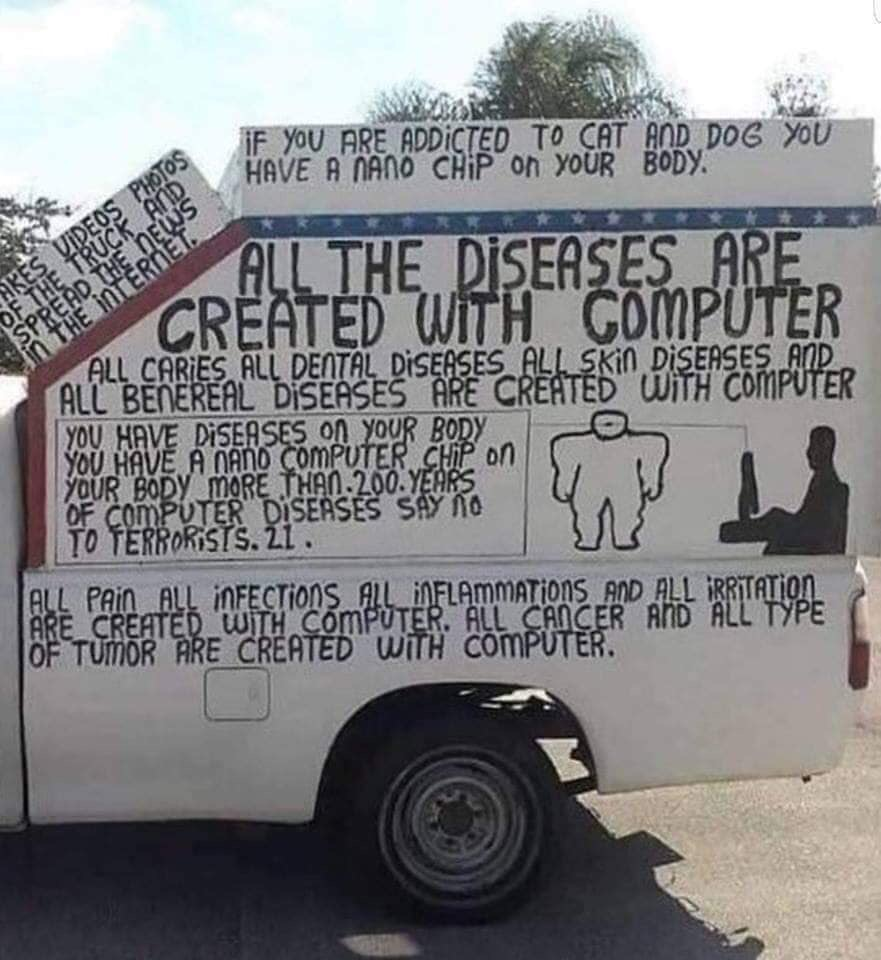 IF YOU ARE ADDICTED TO CAT AND DOG YOU
HAVE A NANO CHIP ON YOUR BODY.
AKES VIDEOS PHOTOS
OF THE TRUCK AND
SPREAD THE NEWS
IN THE INTERNET.
ALL THE DISEASES ARE
CREATED WITH COMPUTER
ALL CARIES ALL DENTAL DISEASES ALL SKIN DISEASES AND
ALL BENEREAL DISEASES ARE CREATED WITH COMPUTER
YOU HAVE DISEASES ON YOUR BODY
YOU HAVE A NANO COMPUTER CHIP ON
YOUR BODY MORE THAN.200.YEARS
OF COMPUTER DISEASES SAY NO
TO TERRORISTS.21.
ALL PAIN ALL INFECTIONS ALL INFLAMMATIONS AND ALL IRRITATION
ARE CREATED WITH COMPUTER. ALL CANCER AND ALL TYPE
OF TUMOR ARE CREATED WITH COMPUTER.